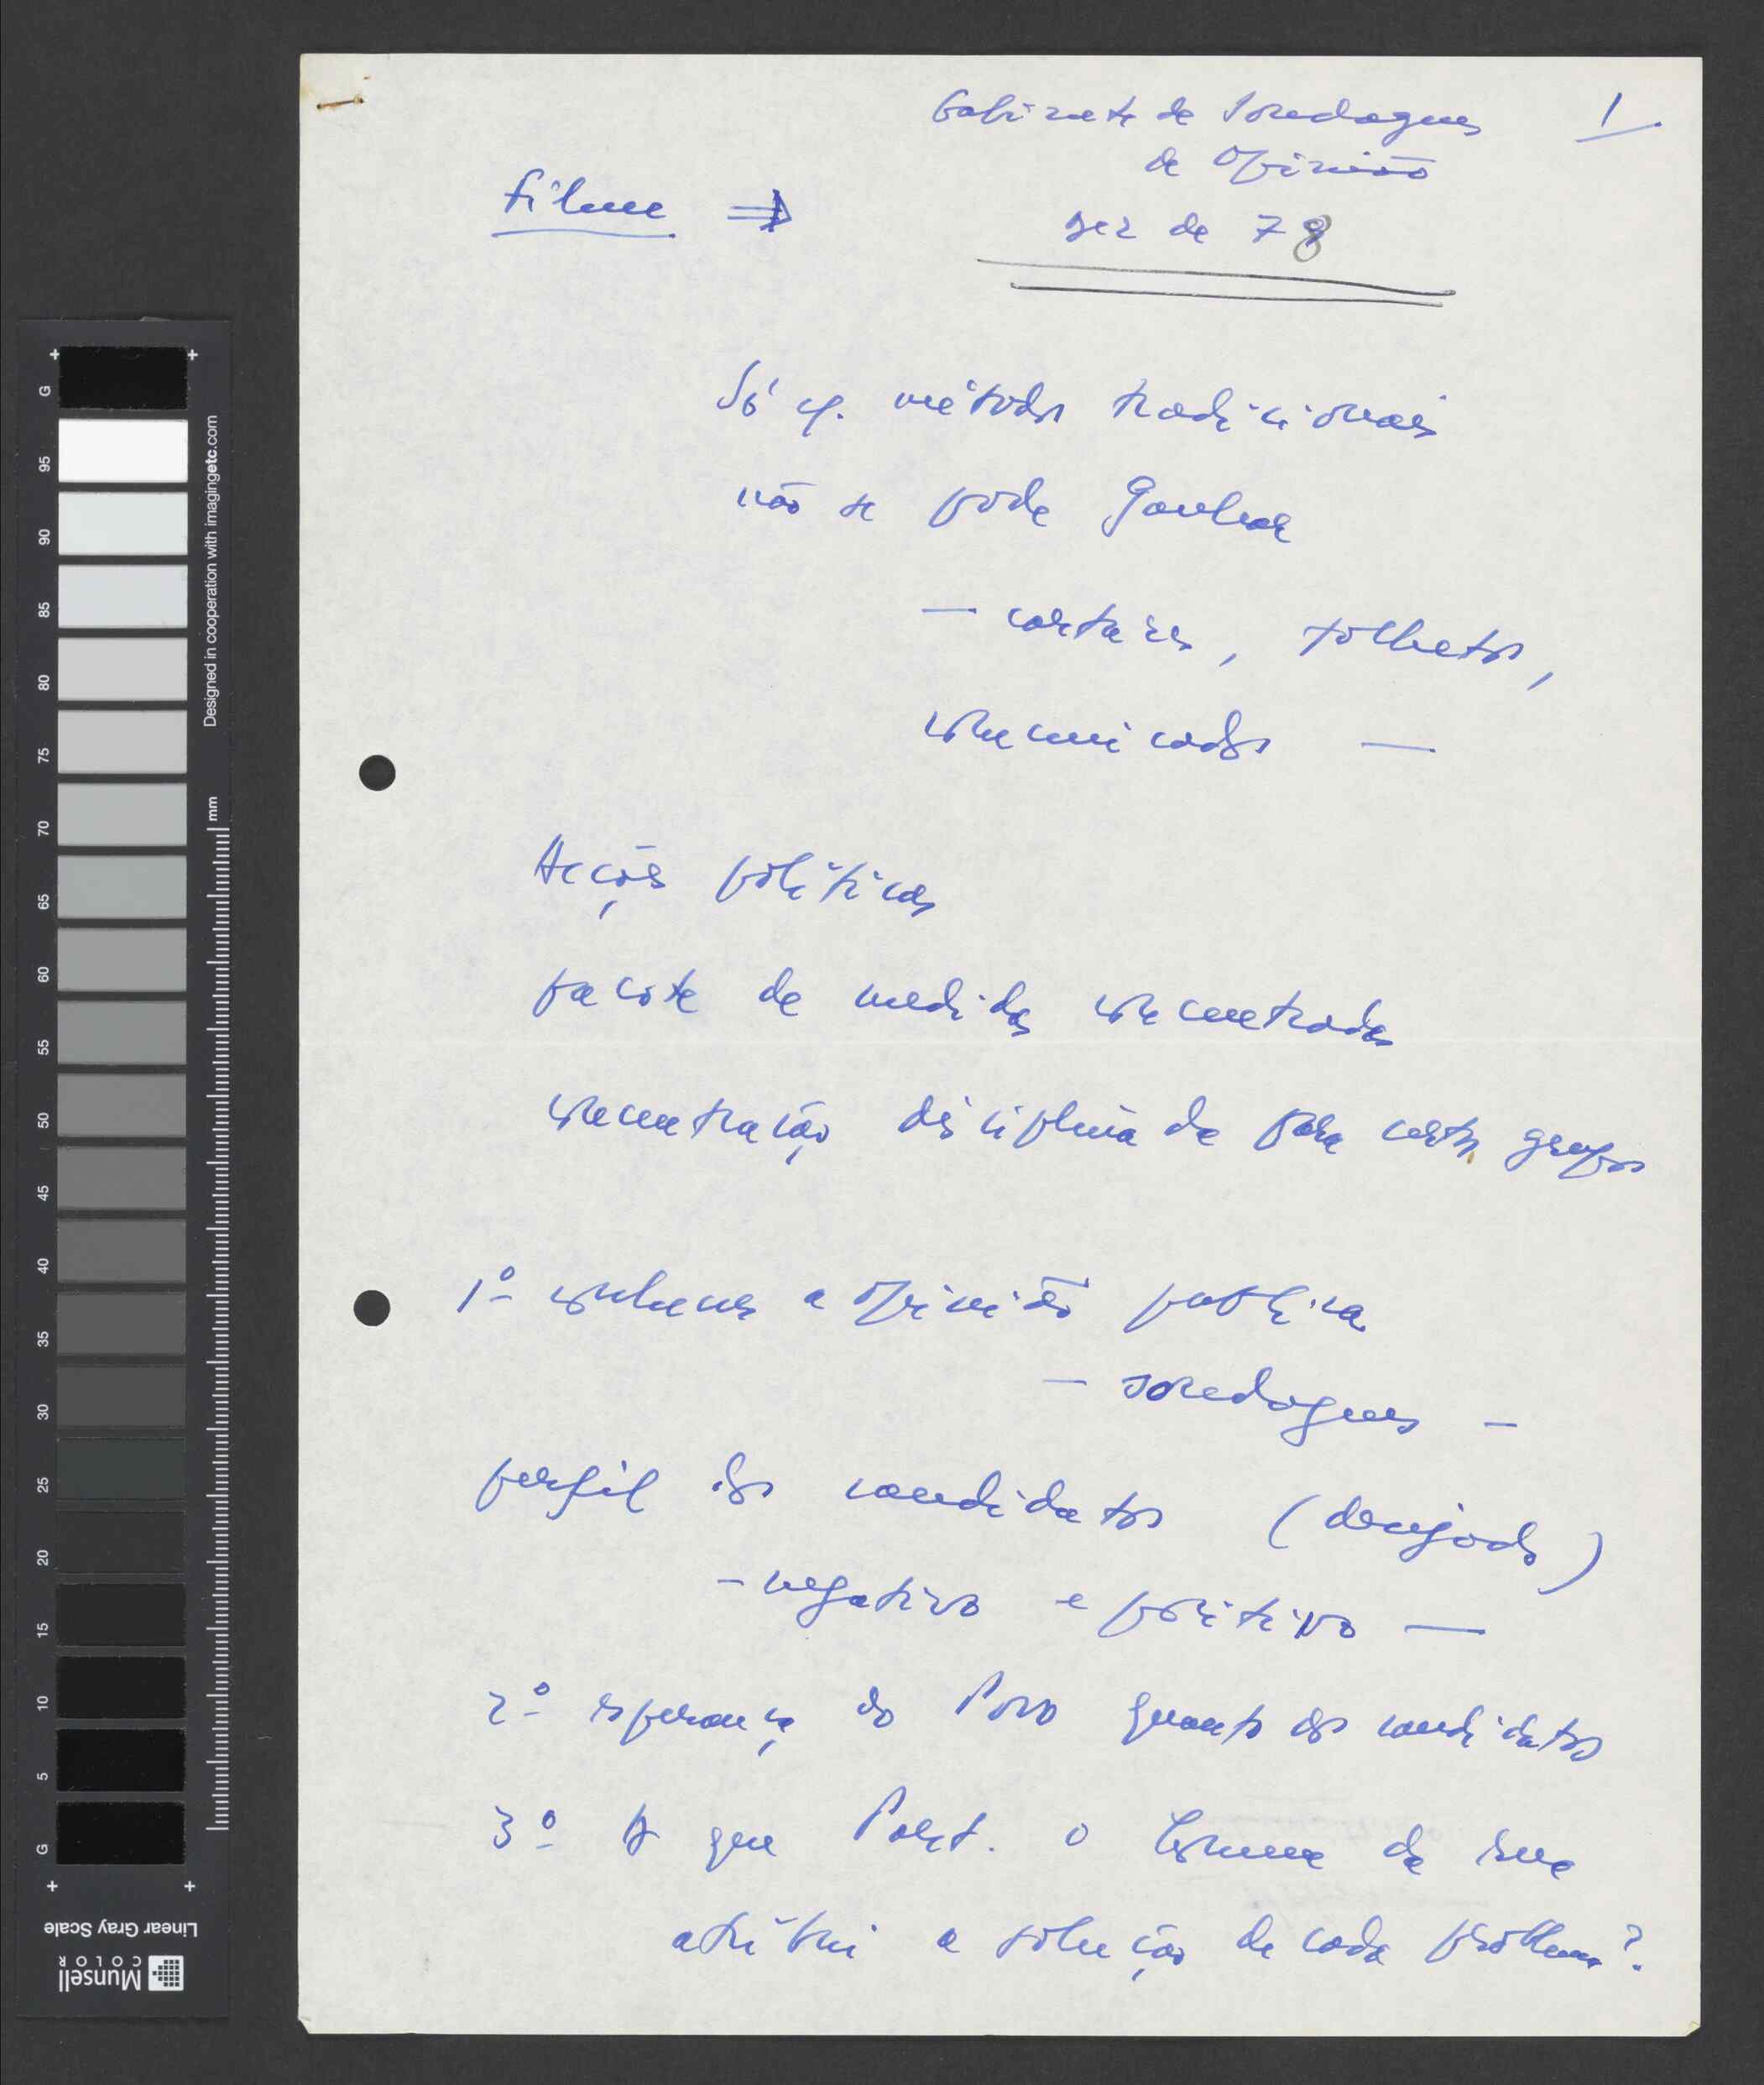 Gabinete de Sondagens 1.
de Opinião
Filme ⇒
Dez de 78
Só c/. métodos tradicionais
não se pode Ganhar
— cartazes, folhetos,
comunicados —
Acções políticas
pacote de medidas concentradas
concentração disciplinada para certos grupos
1º conhecer a opinião publica
— sondagens —
perfil dos candidatos (desejado)
- negativo e positivo —
2º esperança do Povo quanto aos candidatos
3º A que Part. o Homem da rua
atribui a solução de cada problema?
G
95
90
85
80
75
70
65
60
55
50
45
40
35
30
25
20
15
10
5
G
mm
Designed in cooperation with imagingetc.com
Linear Gray Scale
Munsell
COLOR